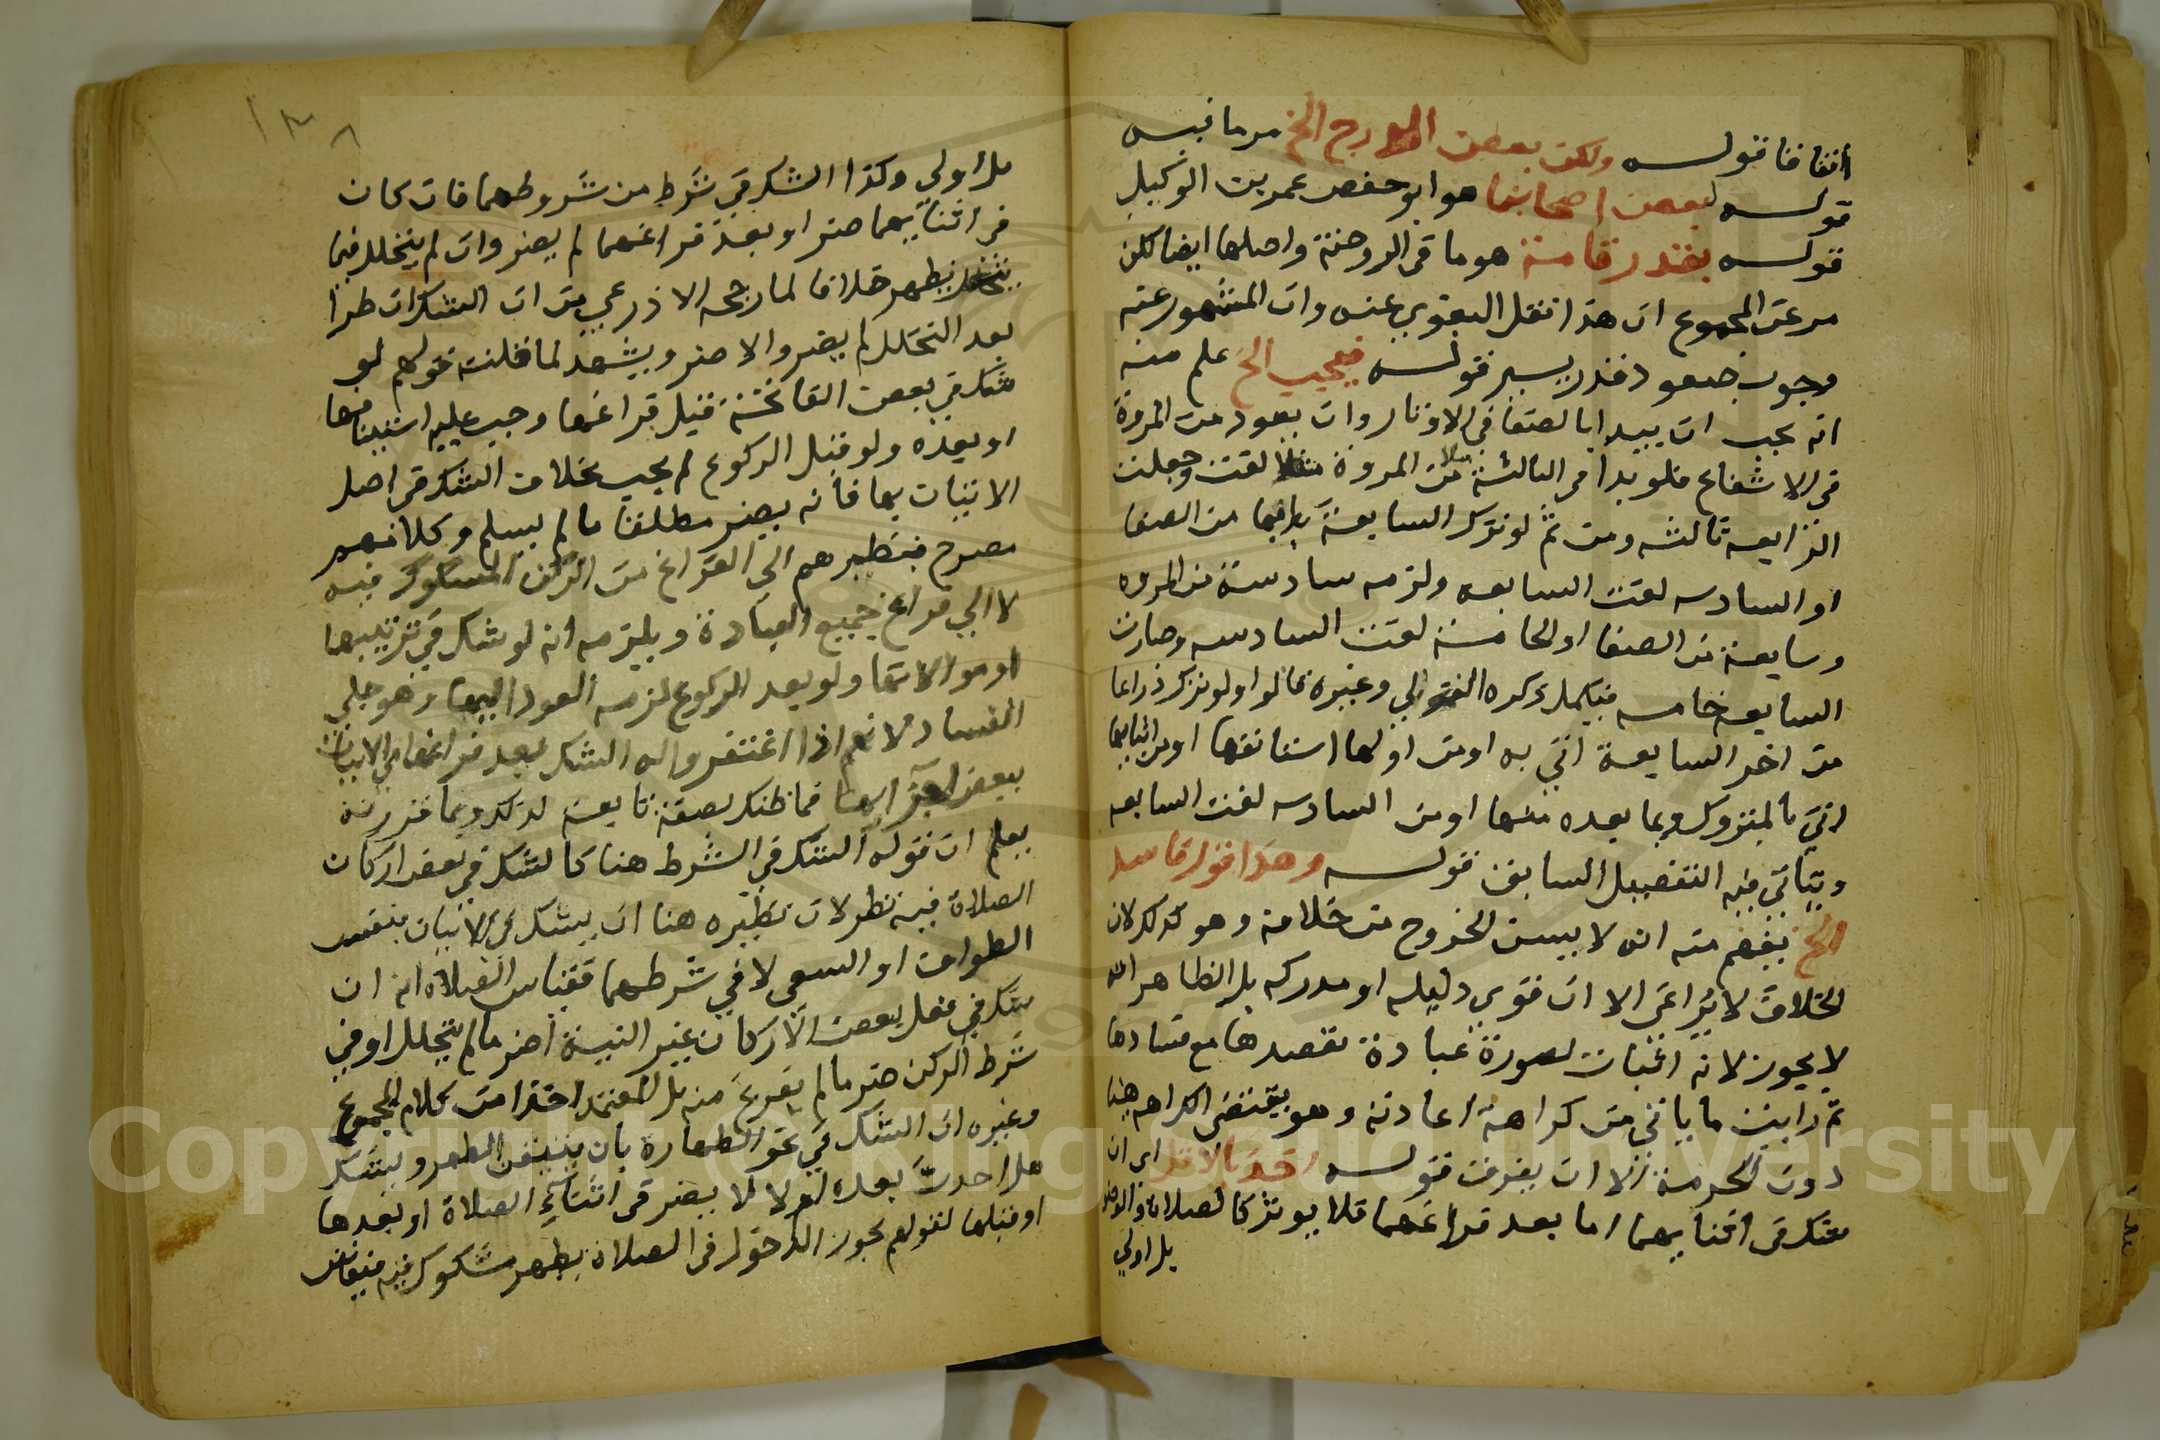 اتفاقا قوله ولكن بعض الدرج الخ مر ما فيه
قوله لبعض اصحابنا هو ابو حفص عمر بن الوكيل
قوله بقدر قامة هو ما في الروضة واصلها ايضا لكن
مر عن المجموع ان هذا نقل البغوي عنه وان المشهور عنه
وجوب صعود قدر يسير قوله فيجب الخ علم منه
انه يجب ان يبدا بالصفا في الاوتار وان يعود من المروة
في الاشفاع فلو بدا في الثالثة مثلا من المروة لغت وجعلت
الرابعة ثالثه ومن ثم لو ترك السابعة بدا بها من الصفا
او السادسه لغت السابعه ولزمه سادسة من المروه
وسابعة من الصفا او الخامسة لغت السادسه وصارت
السابعه خامسه فيكمل ذكره الغزالي وغيره قالوا ولو ترك ذراعا
من اخر السابعة اتى به او من اولها استانفها او من اثنائها
اتى بالمتروك وبما بعده منها او من السادسه لغت السابعه
وياتي فيه التفصيل السابق قوله وهذا قول فاسد
الخ يفهم منه انه لا يسن الخروج من خلافه وهو كذلك لان
الخلاف لا يراعى الا ان قوي دليله او مدركه بل الظاهر انه
لا يجوز لانه اتيان بصورة عبادة تقصدها مع فسادها
ثم رايت ما ياتي من كراهة اعادته وهو يقتضي الكراهه هنا
دون الحرمة الا ان يفرق قوله اخذ بالاقل اي ان
شك في اثنايهما اما بعد فراغهما فلا يوثر كالصلاة والوضو
بل اولي
بل اولي وكذا الشك في شرط من شروطهما فان كان
في اثنايهما ضر او بعد فراغهما لم يضر وان لم يتحلل فيما
يظهر خلافا لما رجحه الاذرعي من ان الشك ان طرا
بعد التحلل لم يضر والا ضر ويشهد لما قلته قولهم لو
شك في بعض الفاتحة قبل فراغها وجب عليه استينافها
او بعده ولو قبل الركوع لم يجب بخلاف الشك في اصل
الاتيان بها فانه يضر مطلقا ما لم يسلم وكلامهم
مصرح بنظرهم الي الفراغ من الركن المشكوك فيه
لا الي فراغ جميع العبادة ويلزمه انه لو شك في ترتيبها
او موالاتها ولو بعد الركوع لزمه العود اليها وهو جلي
الفساد لانهم اذا اغتفروا له الشك بعد فراغها في الاتيان
ببعض اجزايها فما ظنك بصفة تابعة لذلك وبما قررته
يعلم ان قوله الشك في الشرط هنا كالشك في بعض اركان
الصلاة فيه نظر لان نظيره هنا ان يشك في الاتيان بنفس
الطواف او السعي لا في شرطهما فقياس الصلاة انه ان
شك في فعل بعض الاركان غير النية اضر ما لم يتحلل او في
شرط الركن ضر ما لم يفرغ منه بل المعتمد اخذا من كلام المجموع
وغيره ان الشك في نحو الطهارة بان يتيقن الطهر ويشك
هل احدث بعده او لا لا يضر في اثناء الصلاة او بعدها
او قبلها لقولهم يجوز الدخول في الصلاة بطهر مشكوك فيه فبقاس